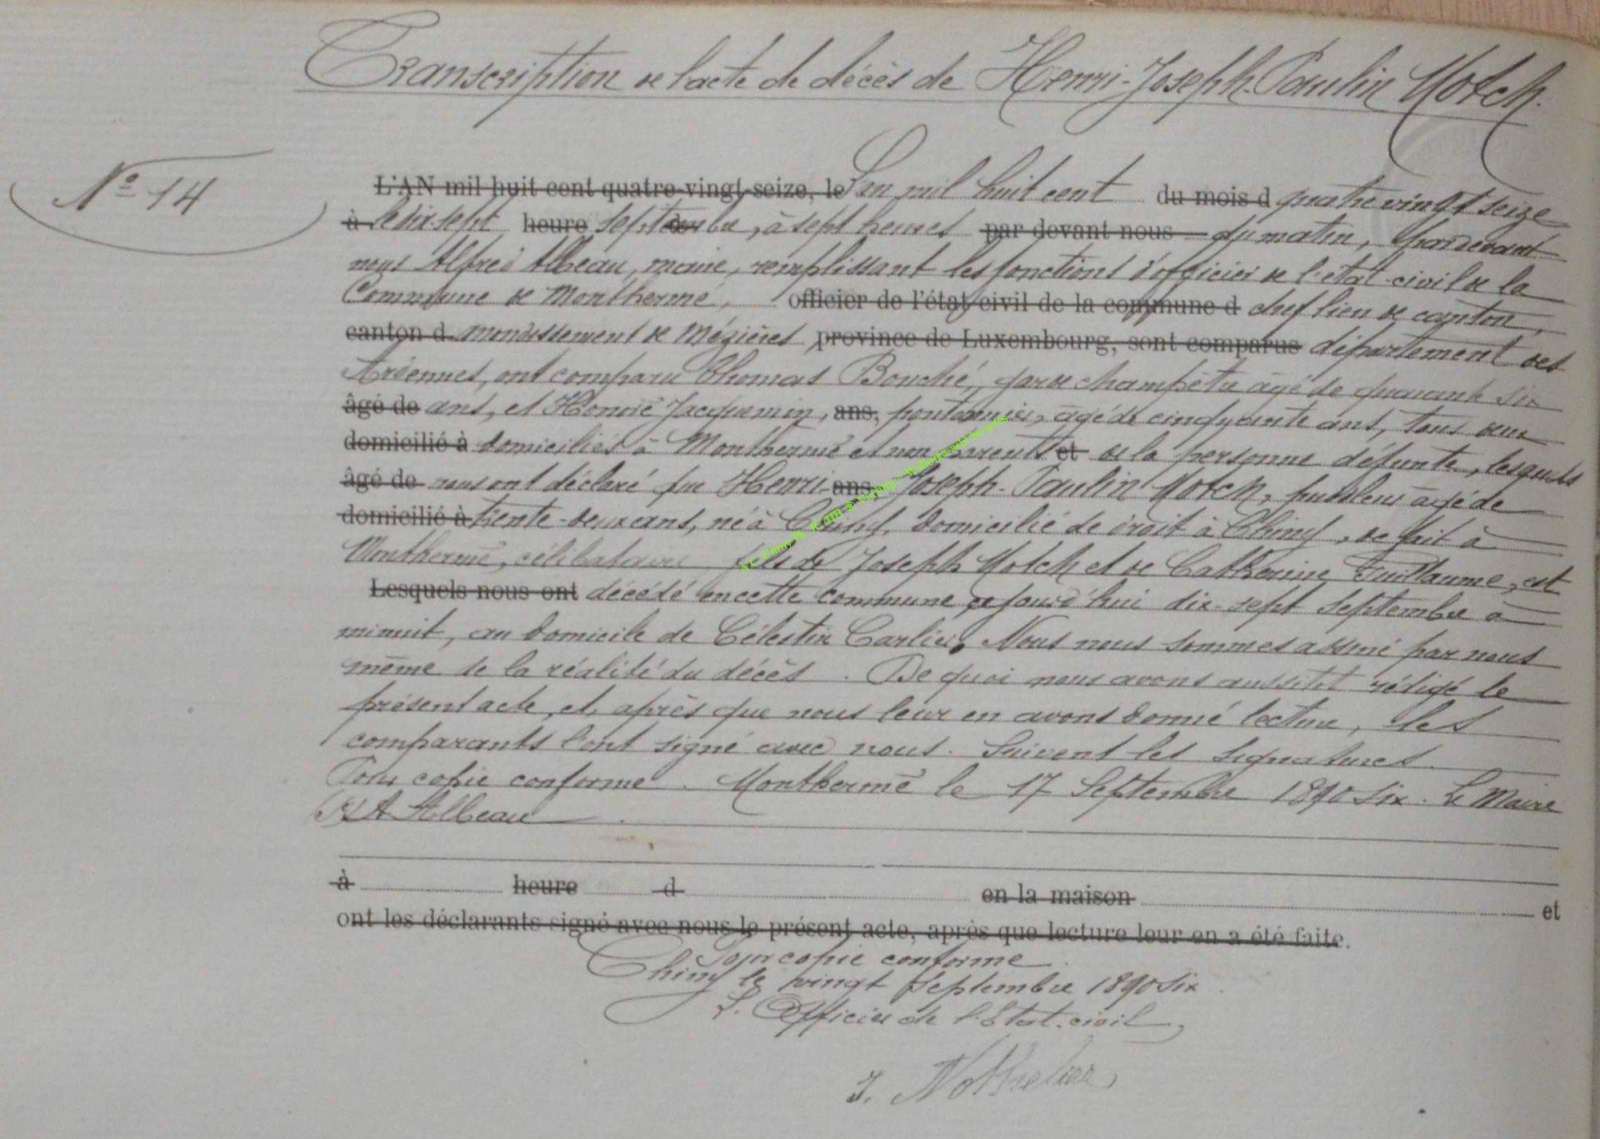 Transcription de l'acte de décès de Henri-Joseph-Paulin Motch.
N° 14
L'AN mil huit cent quatre-vingt-seize, le L'an mil huit cent du mois d quatre vingt seize
à le dix-sept heure septembre, à sept heures par devant nous du matin, par devant
nous Alfred Albeau, maire, remplissant les fonctions d'officier de l'état-civil de la
Commune de Monthermé, officier de l'état civil de la commune d chef lieu de canton,
canton d arrondissement de Mézières province de Luxembourg, sont comparus département des
Ardennes, ont comparu Thomas Bouché, garde champêtre âgé de quarante six
âgé de ans, et Honoré Jacquemin, ans, pontonnier, âgé de cinquante ans, tous deux
domicilié à domiciliés à Monthermé et non parents et de la personne défunte, lesquels
âgé de nous ont déclaré que Henri ans, Joseph-Paulin Motch, puddleur âgé de
domicilié à trente-deux ans, né à Chiny, domicilié de droit à Chiny, de fait à
Monthermé, célibataire fils de Joseph Motch et de Catherine Guillaume, est
Lesquels nous ont décédé en cette commune ce jourd'hui dix-sept septembre à
minuit, au domicile de Célestin Carlier, Nous nous sommes assuré par nous
même de la réalité du décès. De quoi nous avons aussitôt rédigé le
présent acte, et après que nous leur en avons donné lecture, les
comparants l'ont signé avec nous. Suivent les signatures.
Pour copie conforme. Monthermé le 17 Septembre 1890 six. Le Maire
(s) A Albeau
à heure d en la maison et
ont les déclarants signé avec nous le présent acte, après que lecture leur en a été faite.
Pour copie conforme
Chiny le vingt septembre 1890 six.
L'Officier de l'Etat-civil,